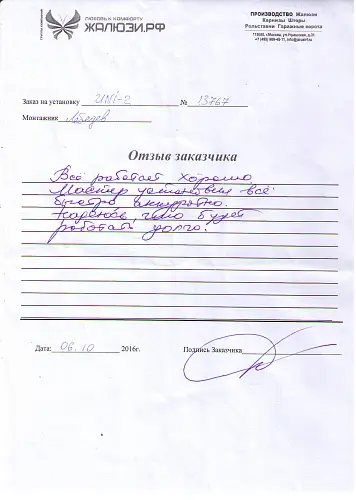 ЛЮБОВЬ К КОМФОРТУ
ЖАЛЮЗИ.РФ
ПРОИЗВОДСТВО Жалюзи
Карнизы Шторы
Рольставни Гаражные ворота
Заказ на установку UNI-2 № 13767
Монтажник Лебедев
Отзыв заказчика
Всё работает хорошо
Мастер установил всё
быстро аккуратно.
Надеюсь, что будет
работать долго.
Дата: 06.10 2016г. Подпись Заказчика